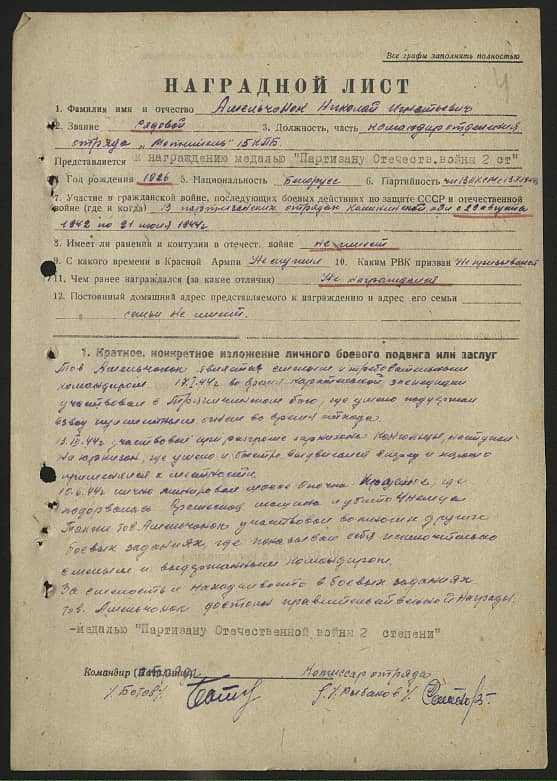 Все графы заполнять полностью
4
НАГРАДНОЙ ЛИСТ
1. Фамилия имя и отчество Амельчонок Николай Игнатьевич
2. Звание Рядовой 3. Должность, часть командир отделения
отряда „Мститель" 15 КПБ
Представляется к награждению медалью "Партизану Отечеств.войны 2 ст"
4. Год рождения 1926 5. Национальность Белорус 6. Партийность чл. ВЛКСМ с
7. Участие в гражданской войне, последующих боевых действиях по защите СССР и отечественной
войне (где и когда) В партизанских отрядах Калининской обл с 29 августа
1942 по 21 июля 1944 г
8. Имеет ли ранения и контузии в отечест. войне не имеет
9. С какого времени в Красной Армии Не служил 10. Каким РВК призван Не призывался
11. Чем ранее награждался (за какие отличия) Не награждался
12. Постоянный домашний адрес представляемого к награждению и адрес его семьи
семьи не имеет.
1. Краткое, конкретное изложение личного боевого подвига или заслуг
Тов Амельчонок является смелым и требовательным
командиром. во время карательной экспедиции
участвовал в бою, где умело поддержал
взвод пулеметным огнем во время отхода.
участвовал при разгроме гарнизона наступал
на гарнизон, где умело и быстро выдвигался вперед и хорошо
применялся к местности.
10.6.44г лично минировал шоссе Опочка Красное, где
подорвалась машина и убито 4 немца
Также тов. Амельчонок участвовал во многих других
боевых заданиях, где показывал себя исключительно
смелым и выдержанным командиром.
За смелость и находчивость в боевых заданиях
тов. Амельчонок достоин правительственной награды
-медалью "Партизану Отечественной войны 2 степени"
Командир Комиссар отряда
/Ботов/ /Рыбаков/